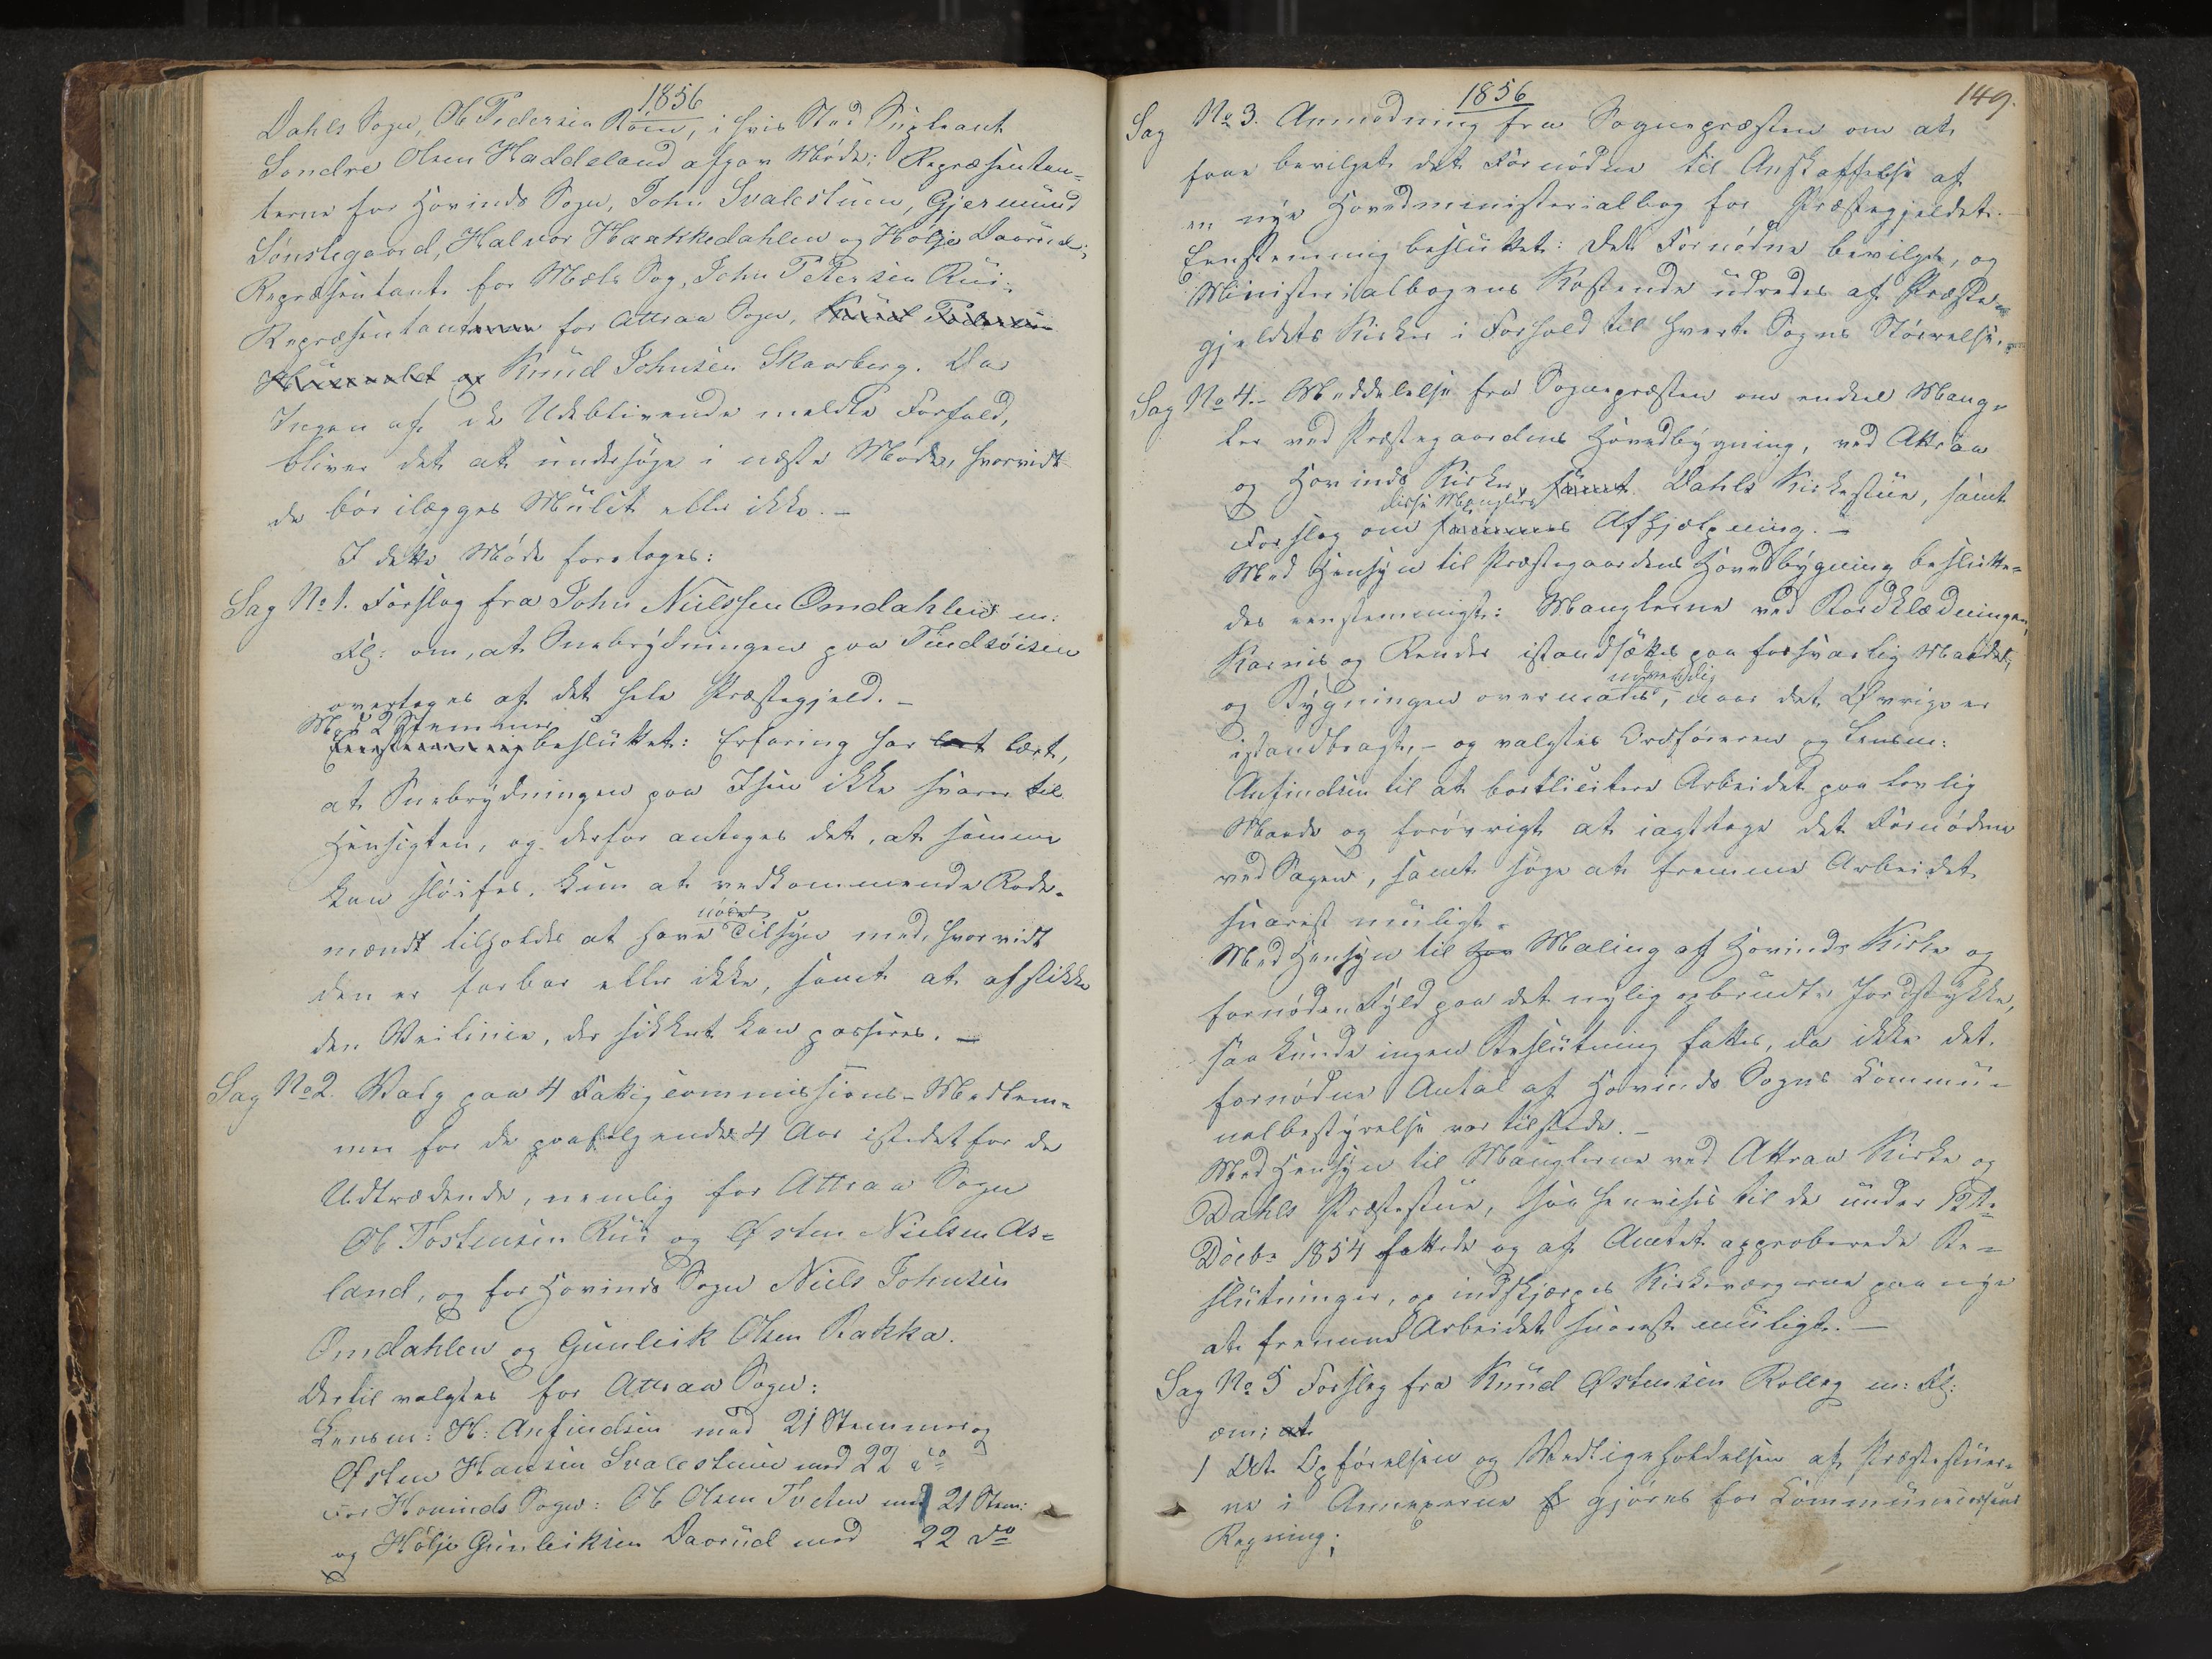 1856
Dahls Sogn, Ole Pedersen Röin, i hvis Sted Supleant
Sondre Olsen Haddeland afgav Möde; Repræsentan-
terne for Hovinds Sogn, John Svalestuen, Gjermund
Sønstegaard, Halvor Haakkedahlen og Hölje Daarud;
Repræsentant for Mæls Sog, John Petersen Rui;
Repræsentanterne for Attraa Sogn, Knud Pedersen
Husevold og Knud Johnsen Skaarberg. Da
Ingen af de Udeblivende meldte Forfald,
bliver det at undersöge i næste Möde, hvorvidt
de bör ilægges Mulct eller ikke. –
I dette Möde foretoges:
Sag No 1. Forslag fra John Nielssen Omdahlen m:
Fl: om, at Sneebrydningen paa Tindsöisen
overtages af det hele Præstegjeld. –
Med 2 Stemmer
Eenstemmig besluttet: Erfaring har lært,
at Sneebrydningen paa Isen ikke svarer til
Hensigten, og derfor antages det, at samme
kan slöifes, kun at vedkommende Rode-
mænd tilholdes at have nöiet Tilsyn med, hvorvidt
den er farbar eller ikke, samt at afstikke
den Veilinie, der sikkert kan passeres. –
Sag No 2. Valg paa 4 Fattigcommissions-Medlem-
mer for de paafølgende 4 Aar istedet for de
Udtrædende, nemlig for Attraa Sogn
Ole Tostensen Rui og Østen Nielsen As-
land, og for Hovinds Sogn Niels Johnsen
Omdahlen og Gunleik Olsen Bakka.
Dertil valgtes for Attraa Sogn:
Lensm: H: Anfindsen med 21 Stemmer og
Østen Hansen Svalestuen med 22 do
For Hovinds Sogn: Ole Olsen Tveten med 21 Stem:
og Hölje Gunleiksen Daarud med 22 do
1856
149.
Sag No 3. Anmodning fra Sognepræsten om at
faae bevilget det Fornödne til Anskaffelse af
en nye Hovedministerialbog for Præstegjeldet. –
Eenstemmig besluttet: Det Fornödne bevilges, og
Ministerialbogens Kostende udredes af Præste-
gjeldets Kirker i Forhold til hvert Sogns Störrelse. –
Sag No 4. – Meddelelse fra Sognepræsten om endeel Mang-
ler ved Præstegaardens Hovedbygning, ved Attraa
og Hovinds Kirker, samt Dahls Kirkestue, samt
disse Manglers
Forslag om sammes Afhjelpning. –
Med Hensyn til Præstegaardens Hovedbygning beslutte-
des eenstemmigt: Manglerne ved Bordklædningen,
Karnis og Render istandsættes paa forsvarlig Maade,
udvendig
og Bygningen overmales, naar det Øvrige er
istandbragt, – og valgtes Ordföreren og Lensm:
Anfindsen til at bortlicitere Arbeidet paa lovlig
Maade og forövrigt at iagttage det Fornödne
ved Sagen, samt söge at fremme Arbeidet
snarest muligt.
Med Hensyn til Hov Maling af Hovinds Kirke og
fornöden Fyld paa det nylig opbrudte Jordstykke,
saa kunde ingen Beslutning fattes, da ikke det
fornödne Antal af Hovinds Sogns Commu-
nalbestyrelse var tilstede. –
Med Hensyn til Manglerne ved Attraa Kirke og
Dahls Præstestue, saa henvises til de under 12te
Decbr 1854 fattede og af Amtet approberede Be-
slutninger, og indskjærpes Kirkeværgerne paa nye
at fremme Arbeidet snarest muligt. –
Sag No 5 Forslag fra Knud Østensen Rollag m: Fl:
om; at
1 At Opförelsen og Vedligeholdelsen af Præstestuer-
ne i Annexerne gjöres for Communecassens
Regning;